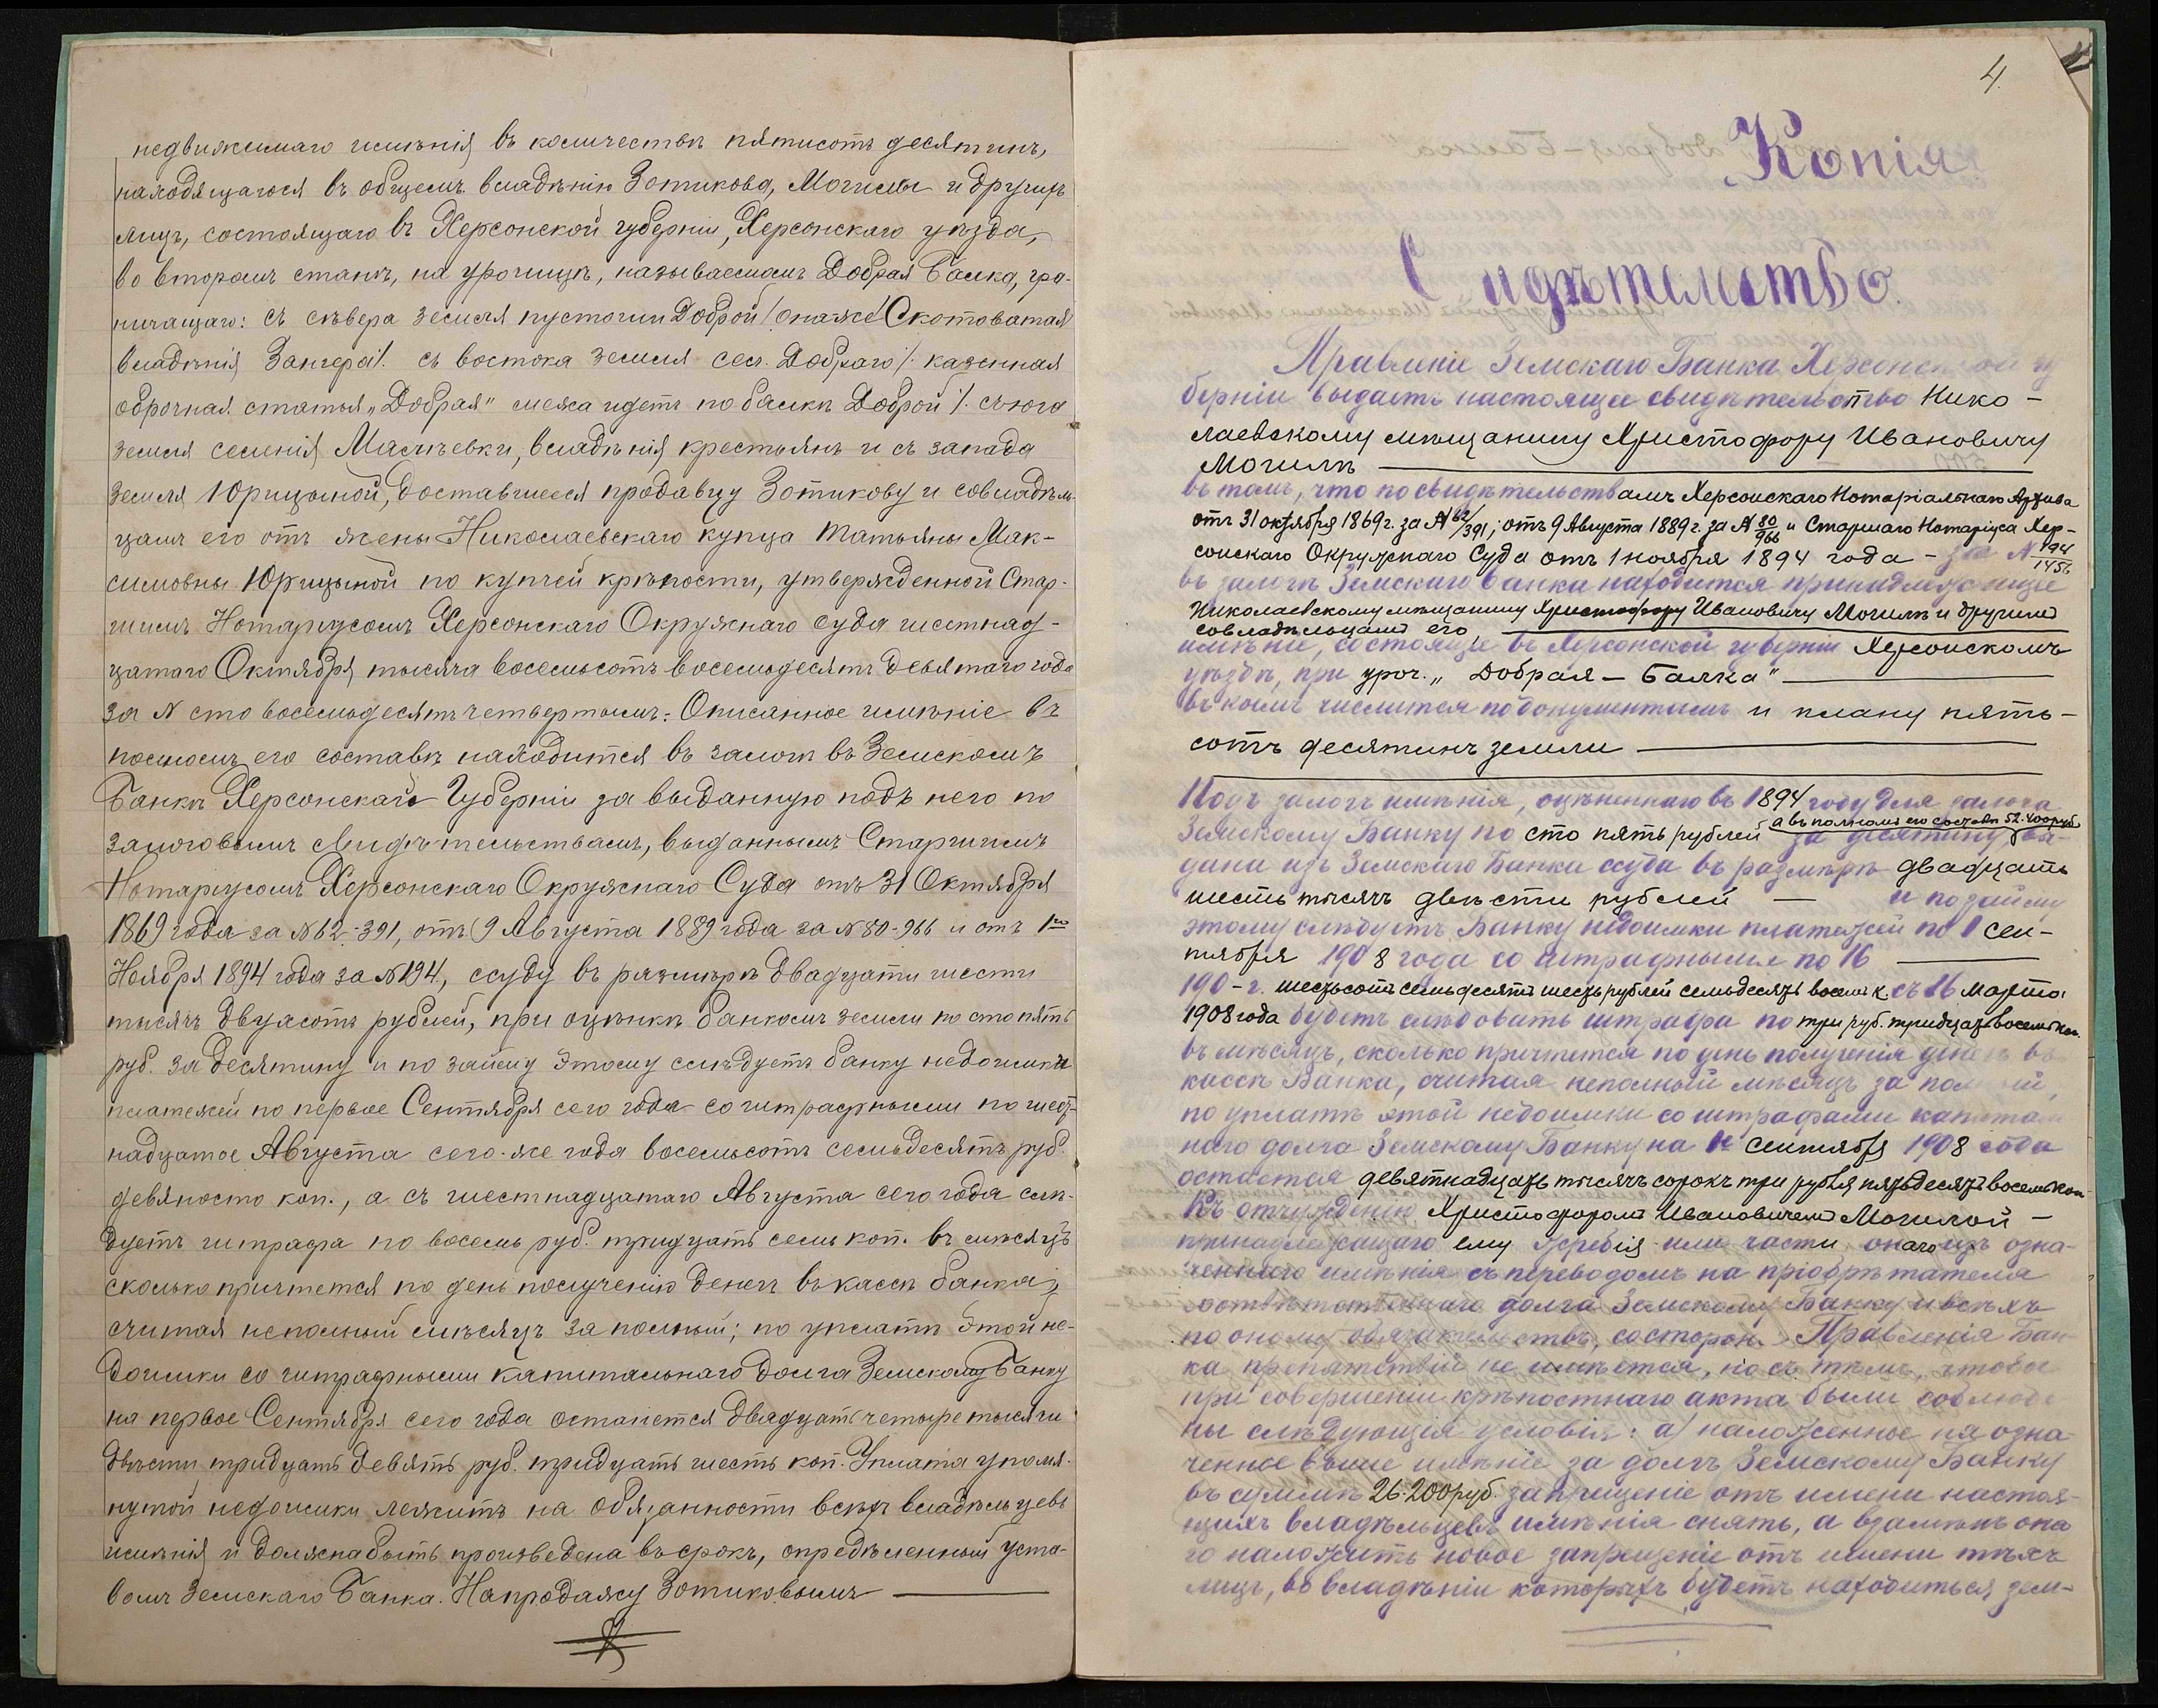 недвижимаго имѣнія въ количествѣ пятисотъ десятинъ,
находящагося въ общемъ владѣнію Зотикова, Могилы и другихъ
лицъ, состоящаго въ Херсонской губерніи, Херсонскаго уѣзда,
во второмъ станѣ, на урочищѣ, называемомъ Добрая Балка, гра-
ничащаго: съ сѣвера земля пустоши Доброй /она-же Скотоватая
владѣнія Зангера/. съ востока земля сел. Добраго /. казенная
оброчная статья „Добрая" межа идетъ по балкѣ Доброй /. съ юга
земля селенія Малѣевки, владѣнія крестьянъ и съ запада
земля Юрицыной, доставшееся продавцу Зотикову и совладѣль-
цамъ его отъ жены Николаевскаго купца Татьяны Мак-
симовны Юрицыной по купчей крѣпости, утвержденной Стар-
шимъ Нотаріусомъ Херсонскаго Окружнаго Суда шестнад-
цатаго Октября тысяча восемьсотъ восемьдесятъ девятаго года
за N сто восемьдесятъ четвертымъ. Описанное имѣніе въ
полномъ его составѣ находится въ залогѣ въ Земскомъ
Банкѣ Херсонской Губерніи за выданную подъ него по
залоговымъ свидѣтельствамъ, выданнымъ Старшимъ
Нотаріусомъ Херсонскаго Окружнаго Суда отъ 31 Октября
1869 года за N 62-391, отъ 9 Августа 1889 года за N 80-966 и отъ 1го
Ноября 1894 года за N 194, ссуду въ размѣрѣ двадцати шести
тысячъ двухсотъ рублей, при оцѣнкѣ банкомъ земли по сто пять
руб. за десятину и по займу этому слѣдуетъ банку недоимки
платежей по первое Сентября сего года со штрафными по шест-
надцатое Августа сего-же года восемьсотъ семьдесятъ руб.
девяносто коп., а съ шестнадцатаго Августа сего года слѣ-
дуетъ штрафа по восемь руб. тридцать семь коп. въ мѣсяцъ
сколько причтется по день полученію денегъ въ кассѣ банка,
считая неполный мѣсяцъ за полный; по уплатѣ этой не-
доимки со штрафными капитальнаго долга Земскому Банку
на первое Сентября сего года останется двадцать четыре тысячи
двѣсти тридцать девять руб. тридцать шесть коп. Уплата упомя-
нутой недоимки лежитъ на обязанности всѣхъ владѣльцевъ
имѣнія и должна быть произведена въ срокъ, опредѣленный уста-
вомъ Земскаго Банка. На продажу Зотиковымъ
4.
Копія
С идѣтельство.
Правленіе Земскаго Банка Херсонской гу
берніи выдаетъ настоящее свидѣтельство Нико-
лаевскому мѣщанину Христофору Ивановичу
Могилѣ
въ томъ, что по свидѣтельствамъ Херсонскаго Нотаріальнаго Архива
отъ 31 октября 1869 г. за N 62/391; отъ 9 Августа 1889 г. за N 80/966 и Старшаго Нотаріуса Хер-
сонскаго Окружнаго Суда отъ 1 ноября 1894 года - за N 194/1456
въ залогѣ Земскаго Банка находится принадлежащее
Николаевскому мѣщанину Христофору Ивановичу Могилѣ и другимъ
совладѣльцамъ его
имѣніе, состоящее въ Херсонской губерніи Херсонскомъ
уѣздѣ, при уроч. „Добрая - Балка"
въ коемъ числится по документамъ и плану пять-
сотъ десятинъ земли
Подъ залогъ имѣнія, оцѣненнаго въ 1894 году для залога
а въ полномъ его составѣ 52.400 руб.
Земскому Банку по сто пять рублей за десятину вы-
дана изъ Земскаго Банка ссуда въ размѣрѣ двадцать
шесть тысячъ двѣсти рублей — и по займу
этому слѣдуетъ Банку недоимки платежей по 1 сен-
тября 1908 года со штрафными по 16
190-г. шестьсотъ семьдесятъ шесть рублей семьдесятъ восемь к. съ 16 марта
1908 года будетъ слѣдовать штрафа по три руб. тридцать восемь коп.
въ мѣсяцъ, сколько причтется по день полученія денегъ въ
кассѣ Банка, считая неполный мѣсяцъ за полный,
по уплатѣ этой недоимки со штрафами капиталь
наго долга Земскому Банку на 1е сентября 1908 года
остается девятнадцать тысячъ сорокъ три рубля пятьдесятъ восемь коп.
Къ отчужденію Христофоромъ Ивановичемъ Могилой -
принадлежащаго ему жребія или части онаго изъ озна-
ченнаго имѣнія съ переводомъ на пріобрѣтателя
соотвѣтственнаго долга Земскому Банку и всѣхъ
по оному обязательствъ, со сторон. Правленія Бан-
ка препятствій не имѣется, но съ тѣмъ, чтобы
при совершеніи крѣпостнаго акта были соблюде
ны слѣдующія условія: а) наложенное на озна
ченное выше имѣніе за долгъ Земскому Банку
въ суммѣ 26.200 руб. запрещеніе отъ имени настоя-
щихъ владѣльцевъ имѣнія снять, а взамѣнъ она
го наложить новое запрещеніе отъ имени тѣхъ
лицъ, въ владѣніи которыхъ будетъ находиться зем-